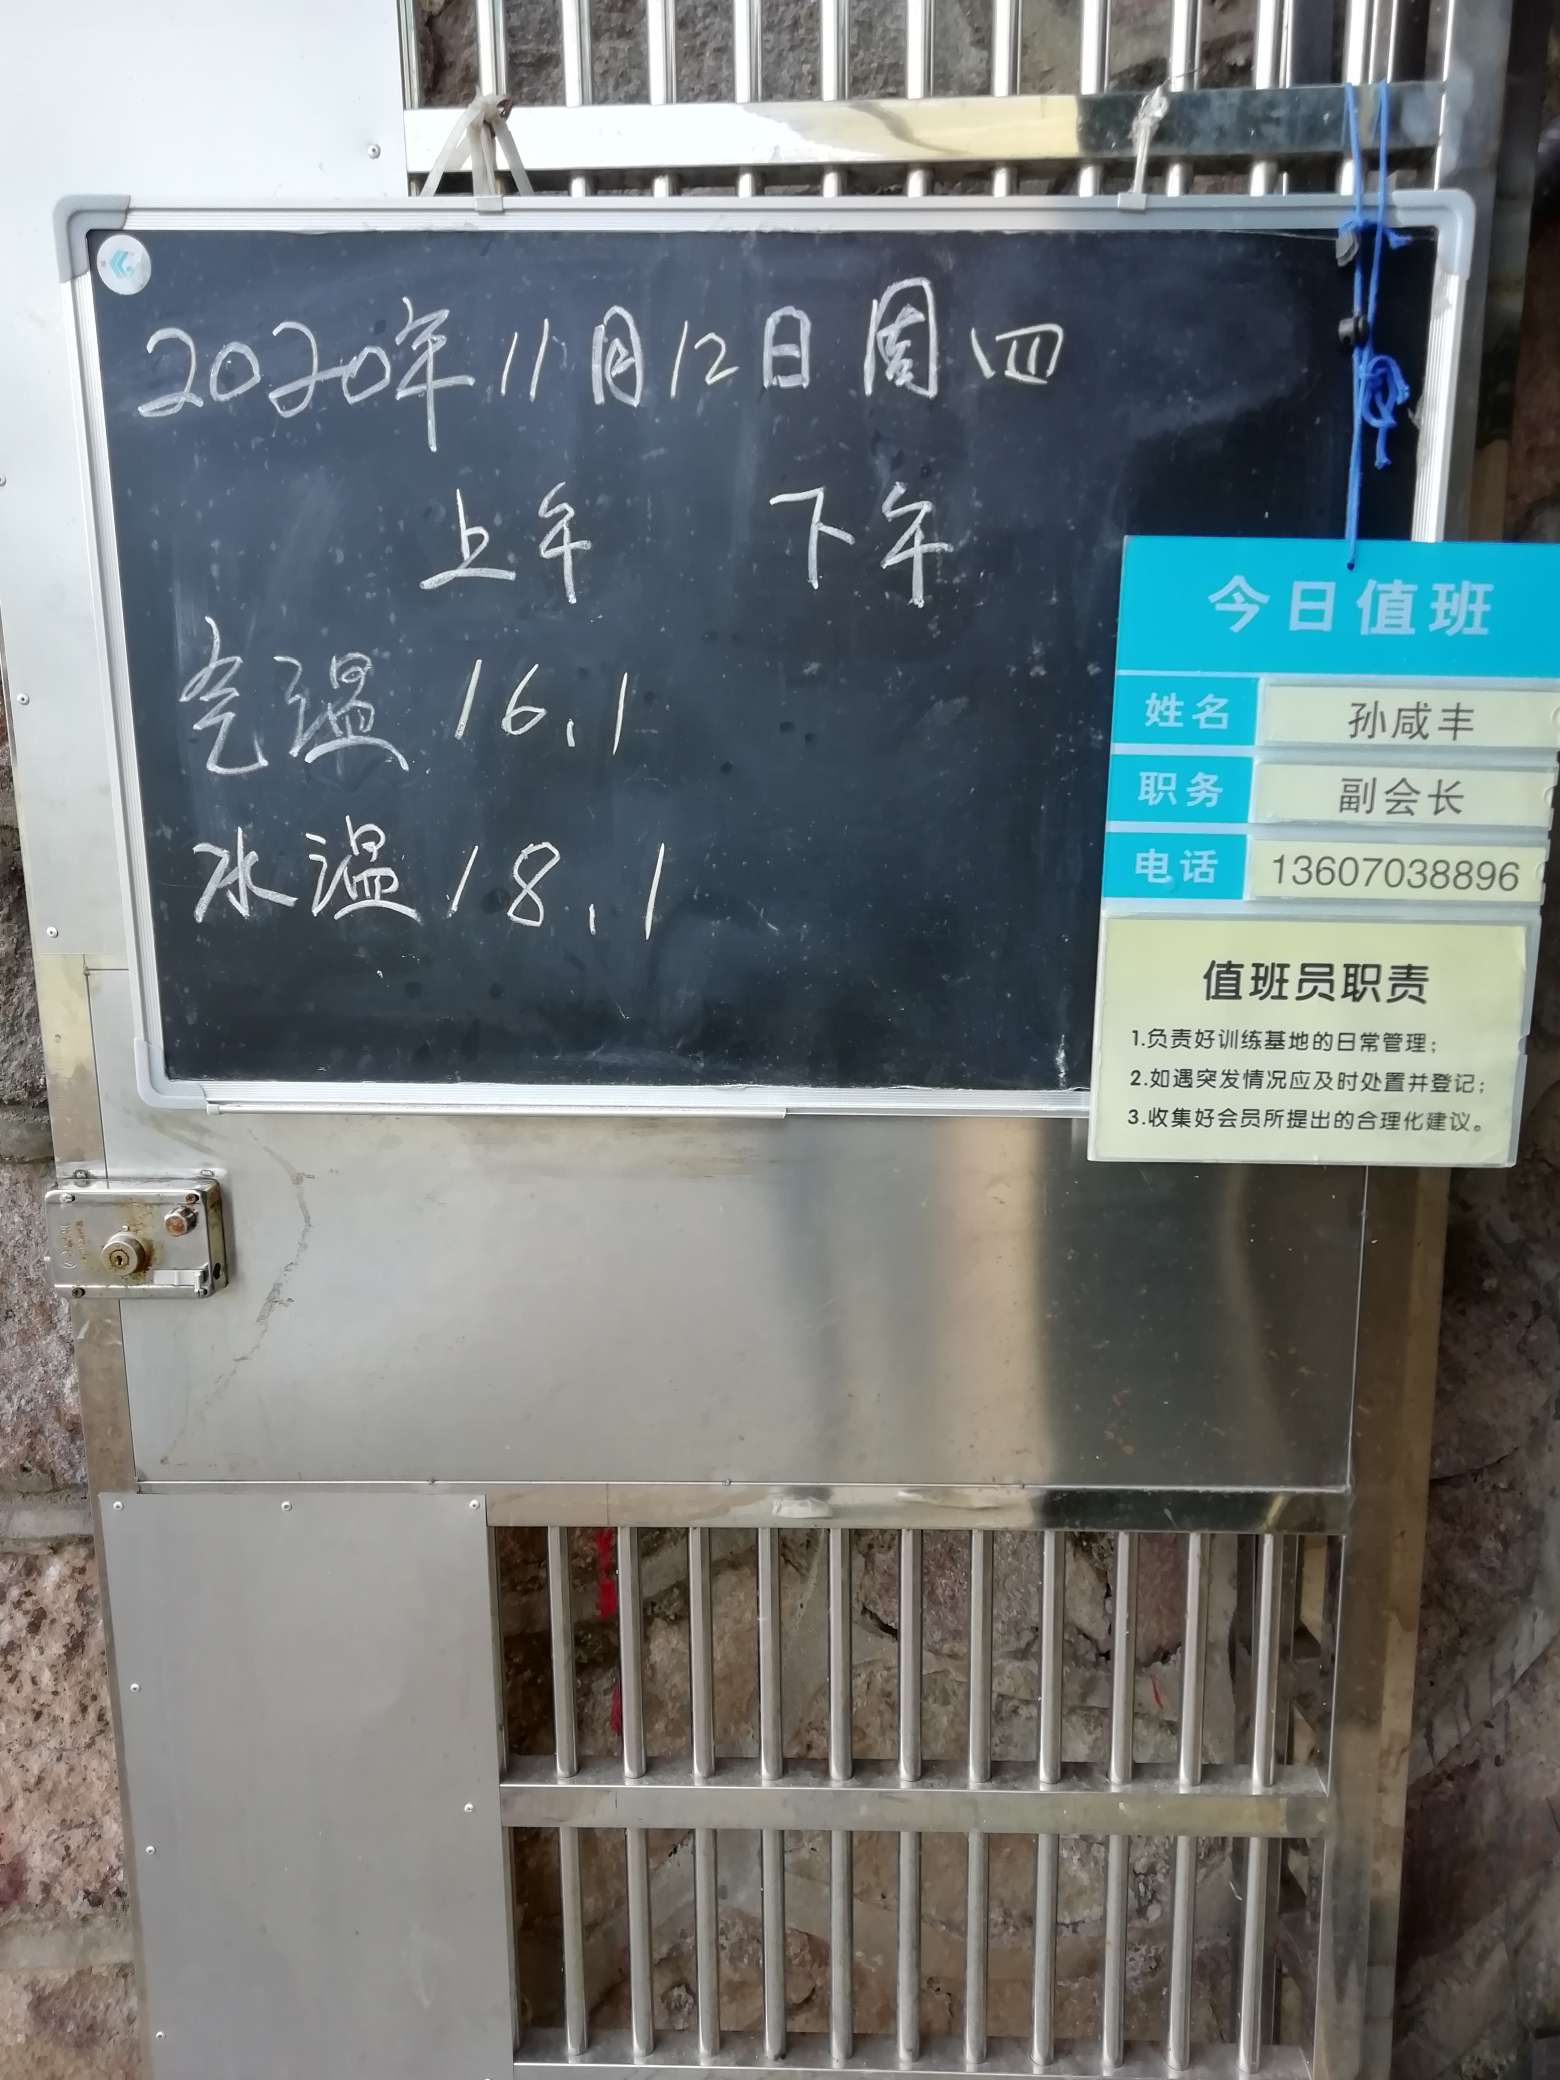 2020年11月12日周四
上午 下午
气温 16.1
水温 18.1
今日值班
姓名 孙咸丰
职务 副会长
电话 13607038896
值班员职责
1.负责好训练基地的日常管理；
2.如遇突发情况应及时处置并登记；
3.收集好会员所提出的合理化建议。